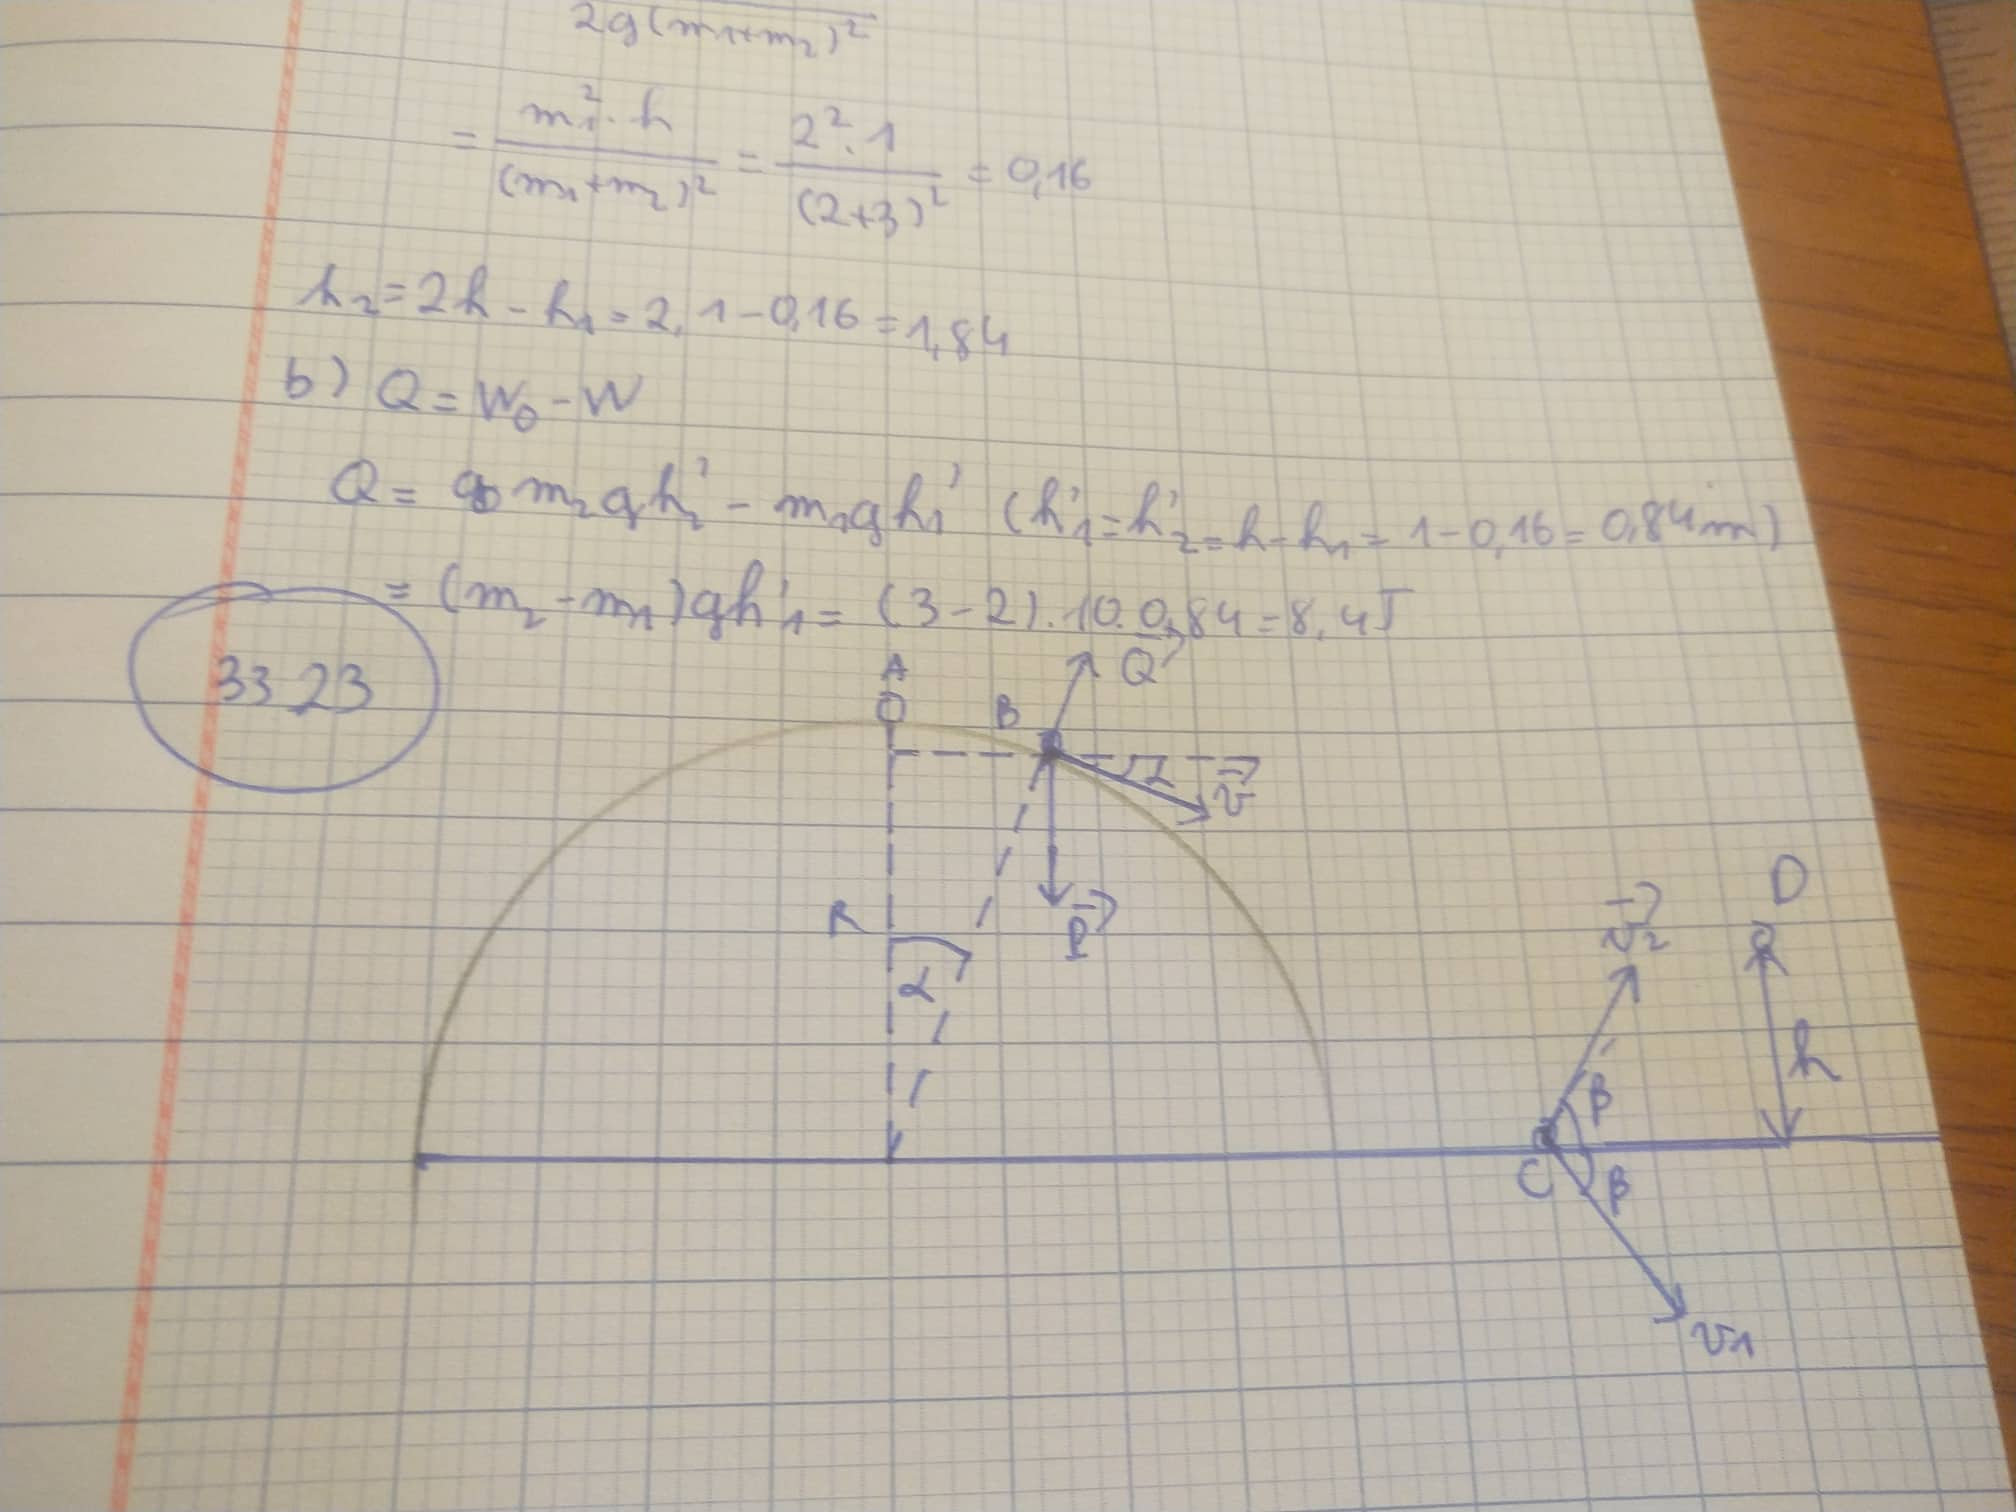 2g(m₁+m₂)²
= m₁².h / (m₁+m₂)² = 2².1 / (2+3)² = 0,16
h₂ = 2h - h₁ = 2.1 - 0,16 = 1,84
b) Q = W₀ - W
Q = m₂gh₂' - m₁gh₁' (h₁' = h₂' = h - h₁ = 1 - 0,16 = 0,84m)
= (m₂ - m₁)gh'₁ = (3-2).10.0,84 = 8,4J
33 23
A
Q
B
α
v
R
P
α
D
v₂
h
β
C
β
v₁